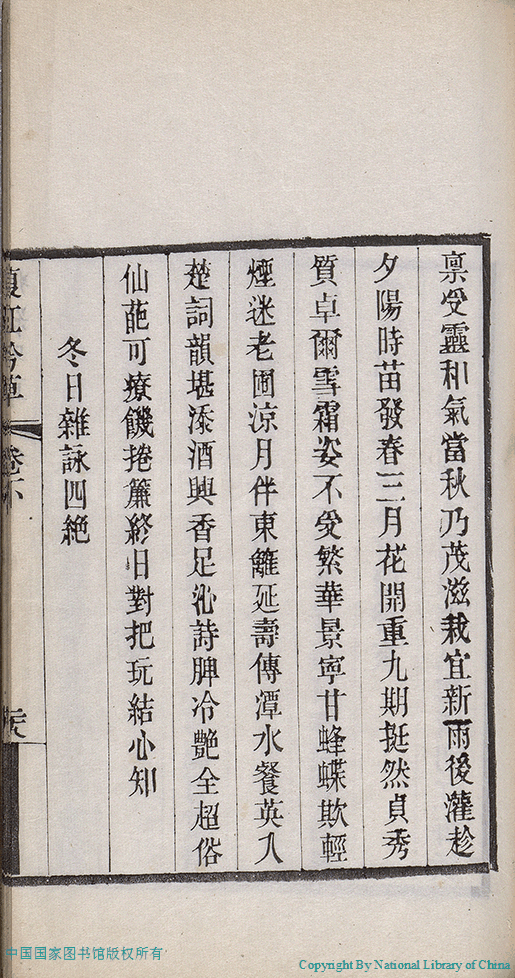 禀受靈和氣當秋乃茂滋栽宜新雨後灌趁
夕陽時苗發春三月花開重九期挺然貞秀
質卓爾雪霜姿不受繁華景寧甘蜂蝶欺輕
煙迷老圃涼月伴東籬延壽傳潭水餐英入
楚詞韻堪添酒興香足沁詩脾冷艷全超俗
仙葩可療饑捲簾終日對把玩結心知
冬日雜詠四絕
吟草
卷下
中国国家图书馆版权所有
Copyright By National Library of China